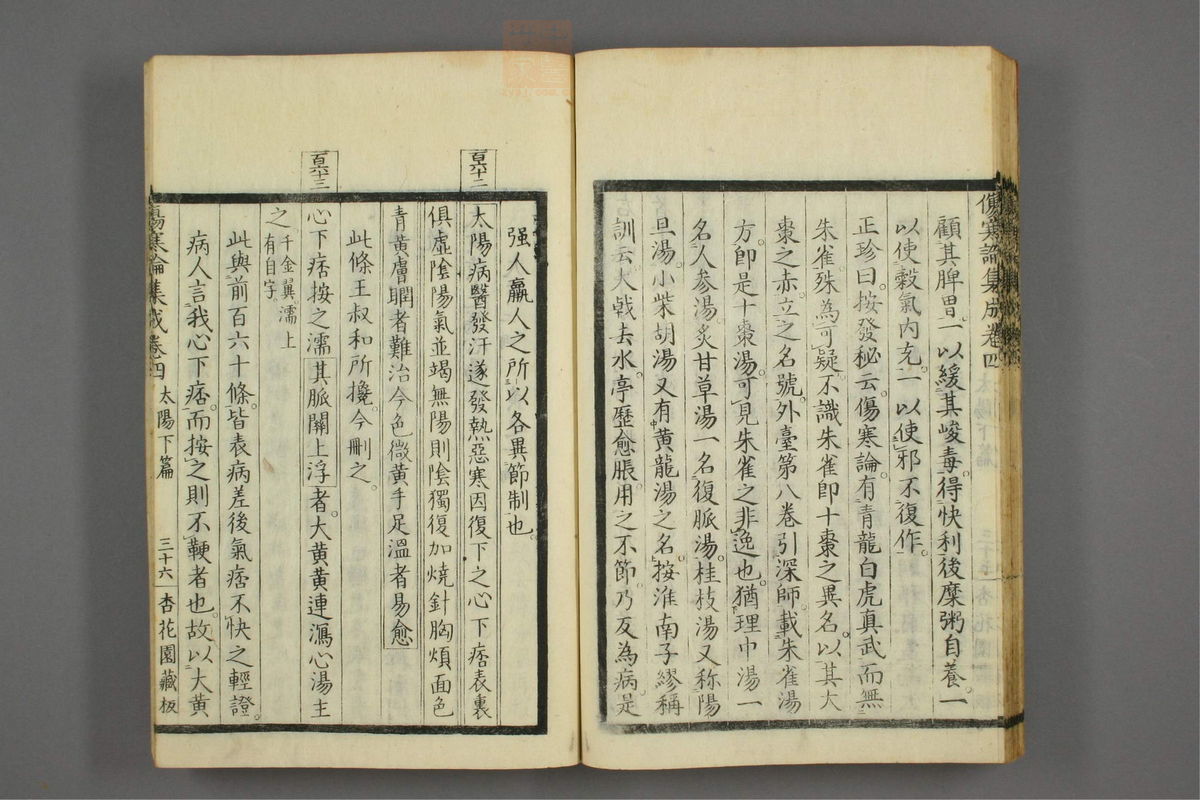 傷寒論集成卷四
顧其脾胃。一以緩其峻毒。得快利後糜粥自養。一
以使穀氣內充。一以使邪不復作。
正珍曰。按發秘云。傷寒論有青龍白虎真武而無
朱雀。殊為可疑。不識朱雀即十棗之異名。以其大
棗之赤。立之名號。外臺第八卷引深師。載朱雀湯
方。即是十棗湯。可見朱雀之非逸也。猶理中湯一
名人參湯。炙甘草湯一名復脈湯。桂枝湯又称陽
旦湯。小柴胡湯又有黄龍湯之名。按淮南子繆稱
訓云。大戟去水。亭歷愈脹。用之不節。乃反為病。是
强人羸人之所以各異節制也。
百六十二
太陽病醫發汗遂發熱惡寒因復下之心下痞表裏
俱虛陰陽氣並竭無陽則陰獨復加燒針胸煩面色
青黄膚瞤者難治今色微黄手足溫者易愈
此條王叔和所攙。今刪之。
百六十三
心下痞按之濡其脈關上浮者。大黄黄連瀉心湯主
之千金翼。濡上有自字。
此與前百六十條。皆表病差後氣痞不快之輕證。
病人言我心下痞。而按之則不鞕者也。故以大黄
傷寒論集成卷四 太陽下篇 三十六 杏花園藏板